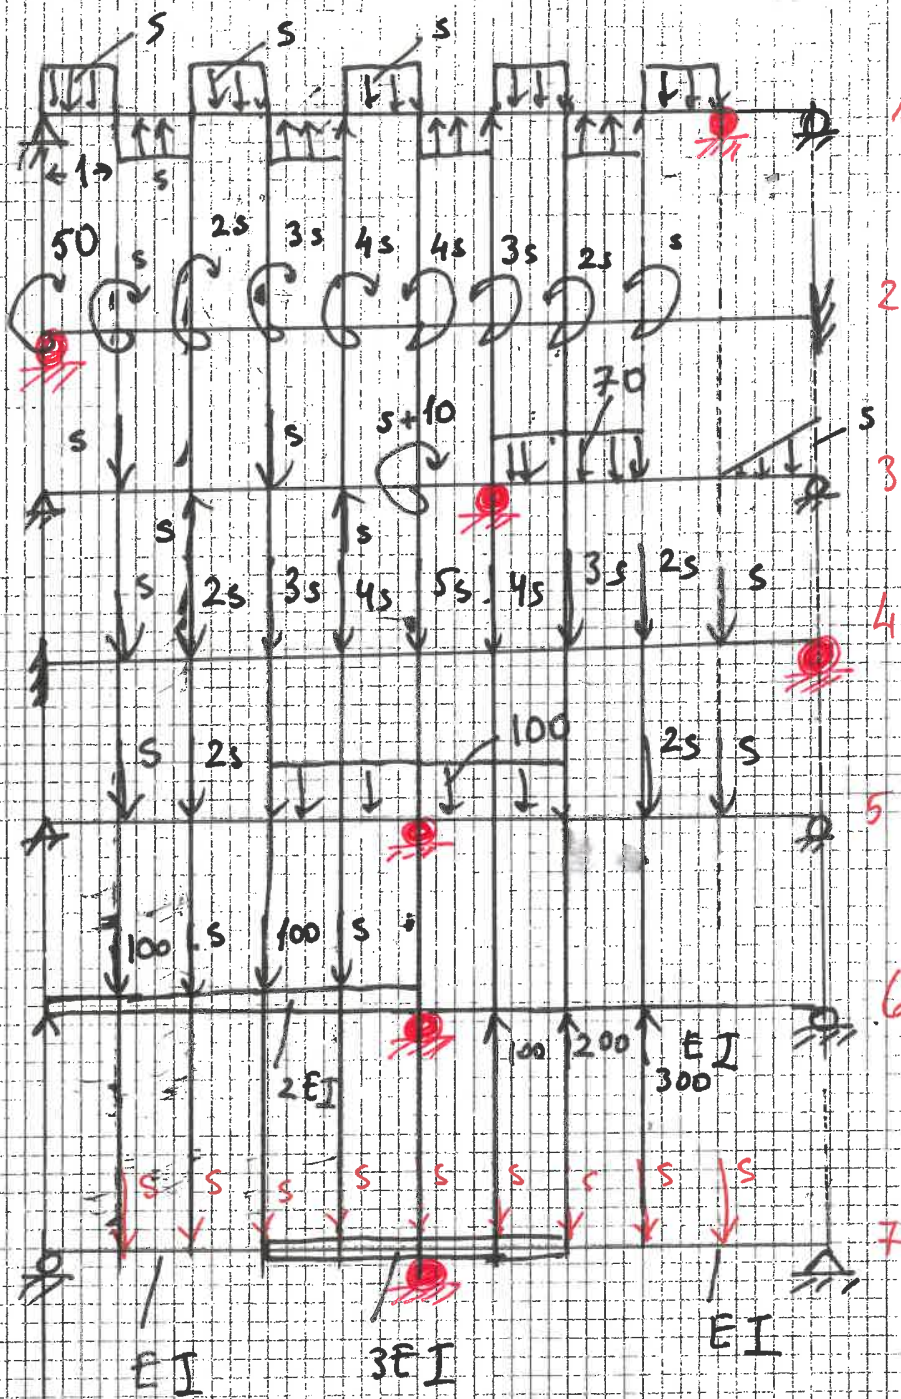 s s s
1
←1→ s
50 s 2s 3s 4s 4s 3s 2s s
2
70
s s s+10 s
3
s s
s 2s 3s 4s 5s 4s 3s 2s s
4
100
s 2s 2s s
5
100 s 100 s
6
2EI 100 200 300 EI
s s s s s s s s s
7
EI 3EI EI